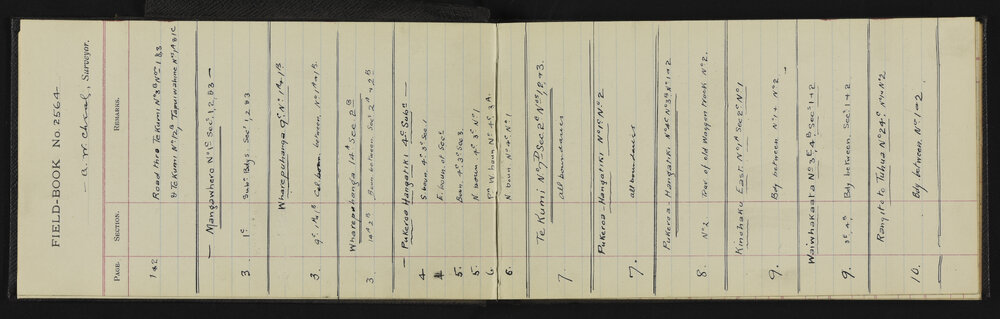 FIELD-BOOK No. 2564
A. W. , Surveyor.
PAGE. SECTION. REMARKS.
1 & 2 Road thro Te Kumi Nº 3ᴮ Nºˢ 1 & 3
& Te Kumi Nº 12ᴮ Nº 1, A & C
— Mangawhero Nº 1ᶜ Secˢ 1, 2, & 3 —
3. 1ᶜ Subⁿ Bdys. Secˢ 1, 2 & 3
Wharepuhanga 9ᶜ Nº 1ᴬ & 1ᴮ
3. 9ᶜ 1ᴬ & 1ᴮ between Nº 1ᴬ & 1ᴮ
Wharepuhanga 14ᴬ Sec 2ᴮ
3 14ᴬ 2ᴮ Boun. between Secˢ 2ᴬ & 2ᴮ
— Pukeroa Hangatiki 4ᶜ Subˢ —
4 S boun. 4ᶜ 3ᶜ Sec. 1
E boun. of Sec.
5. Boun. 4ᶜ 3ᶜ Sec 3.
5. N boun. 4ᶜ 3ᶜ Nº 1
6. Pᵗⁿ W boun Nº 4ᶜ 3A.
6. N boun Nº 4ᶜ Nº 1
Te Kumi Nº 7ᴰ Sec 2ᶜ Nºˢ 1, 2, & 3.
7. All boundaries
Pukeroa-Hangatiki Nº 1ᶜ Nº 2
7. all boundaries
Pukeroa-Hangatiki Nº 4ᶜ Nº 3ᴮ Nº 1 & 2
8. Nº 2 Trav of old Waggon track Nº 2.
Kinohaku East Nº 1ᴬ Sec 2ᶜ Nº 1
9. Bdy between Nº 1 & Nº 2
Waiwhakaata Nº 3ᴱ 4ᴮ Secˢ 1 & 2
9. 3ᴱ 4ᴮ Bdy between Secˢ 1 & 2
Rangitoto Tuhua Nº 24ᶜ Nº 1 & Nº 2
10. Bdy between Nº 1 & 2